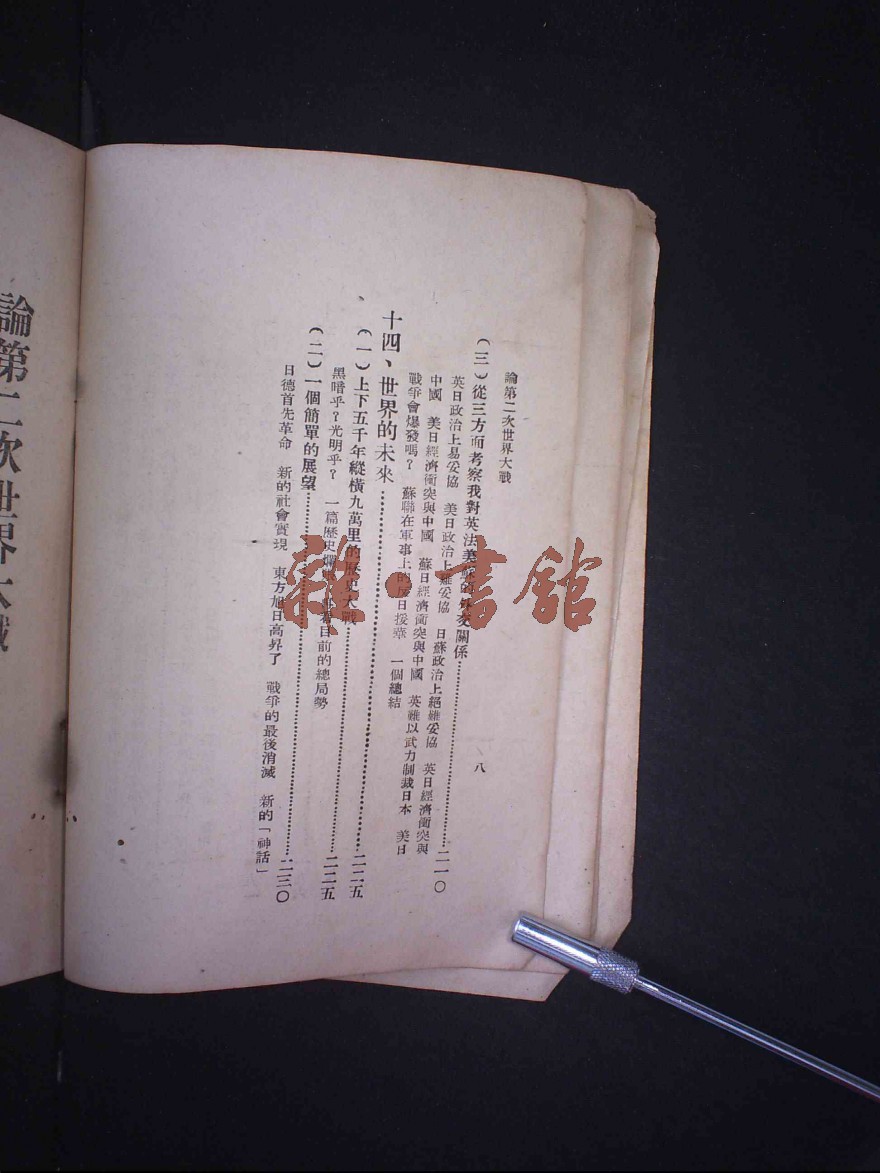 論第二次世界大戰
八
(三)從三方面考察我對英法美蘇的外交關係……二一〇
英日政治上易妥協 美日政治上難妥協 日蘇政治上絕難妥協 英日經濟衝突與
中國 美日經濟衝突與中國 蘇日經濟衝突與中國 英難以武力制裁日本 美日
戰爭會爆發嗎? 蘇聯在軍事上的 日援華 一個總結
十四、世界的未來……二二五
(一)上下五千年縱橫九萬里的歷史大戰……二二五
黑暗乎?光明乎? 一篇歷史 目前的總局勢
(二)一個簡單的展望……二三〇
日德首先革命 新的社會實現 東方旭日高昇了 戰爭的最後消滅 新的「神話」
論第二次世界大戰
雜·書館